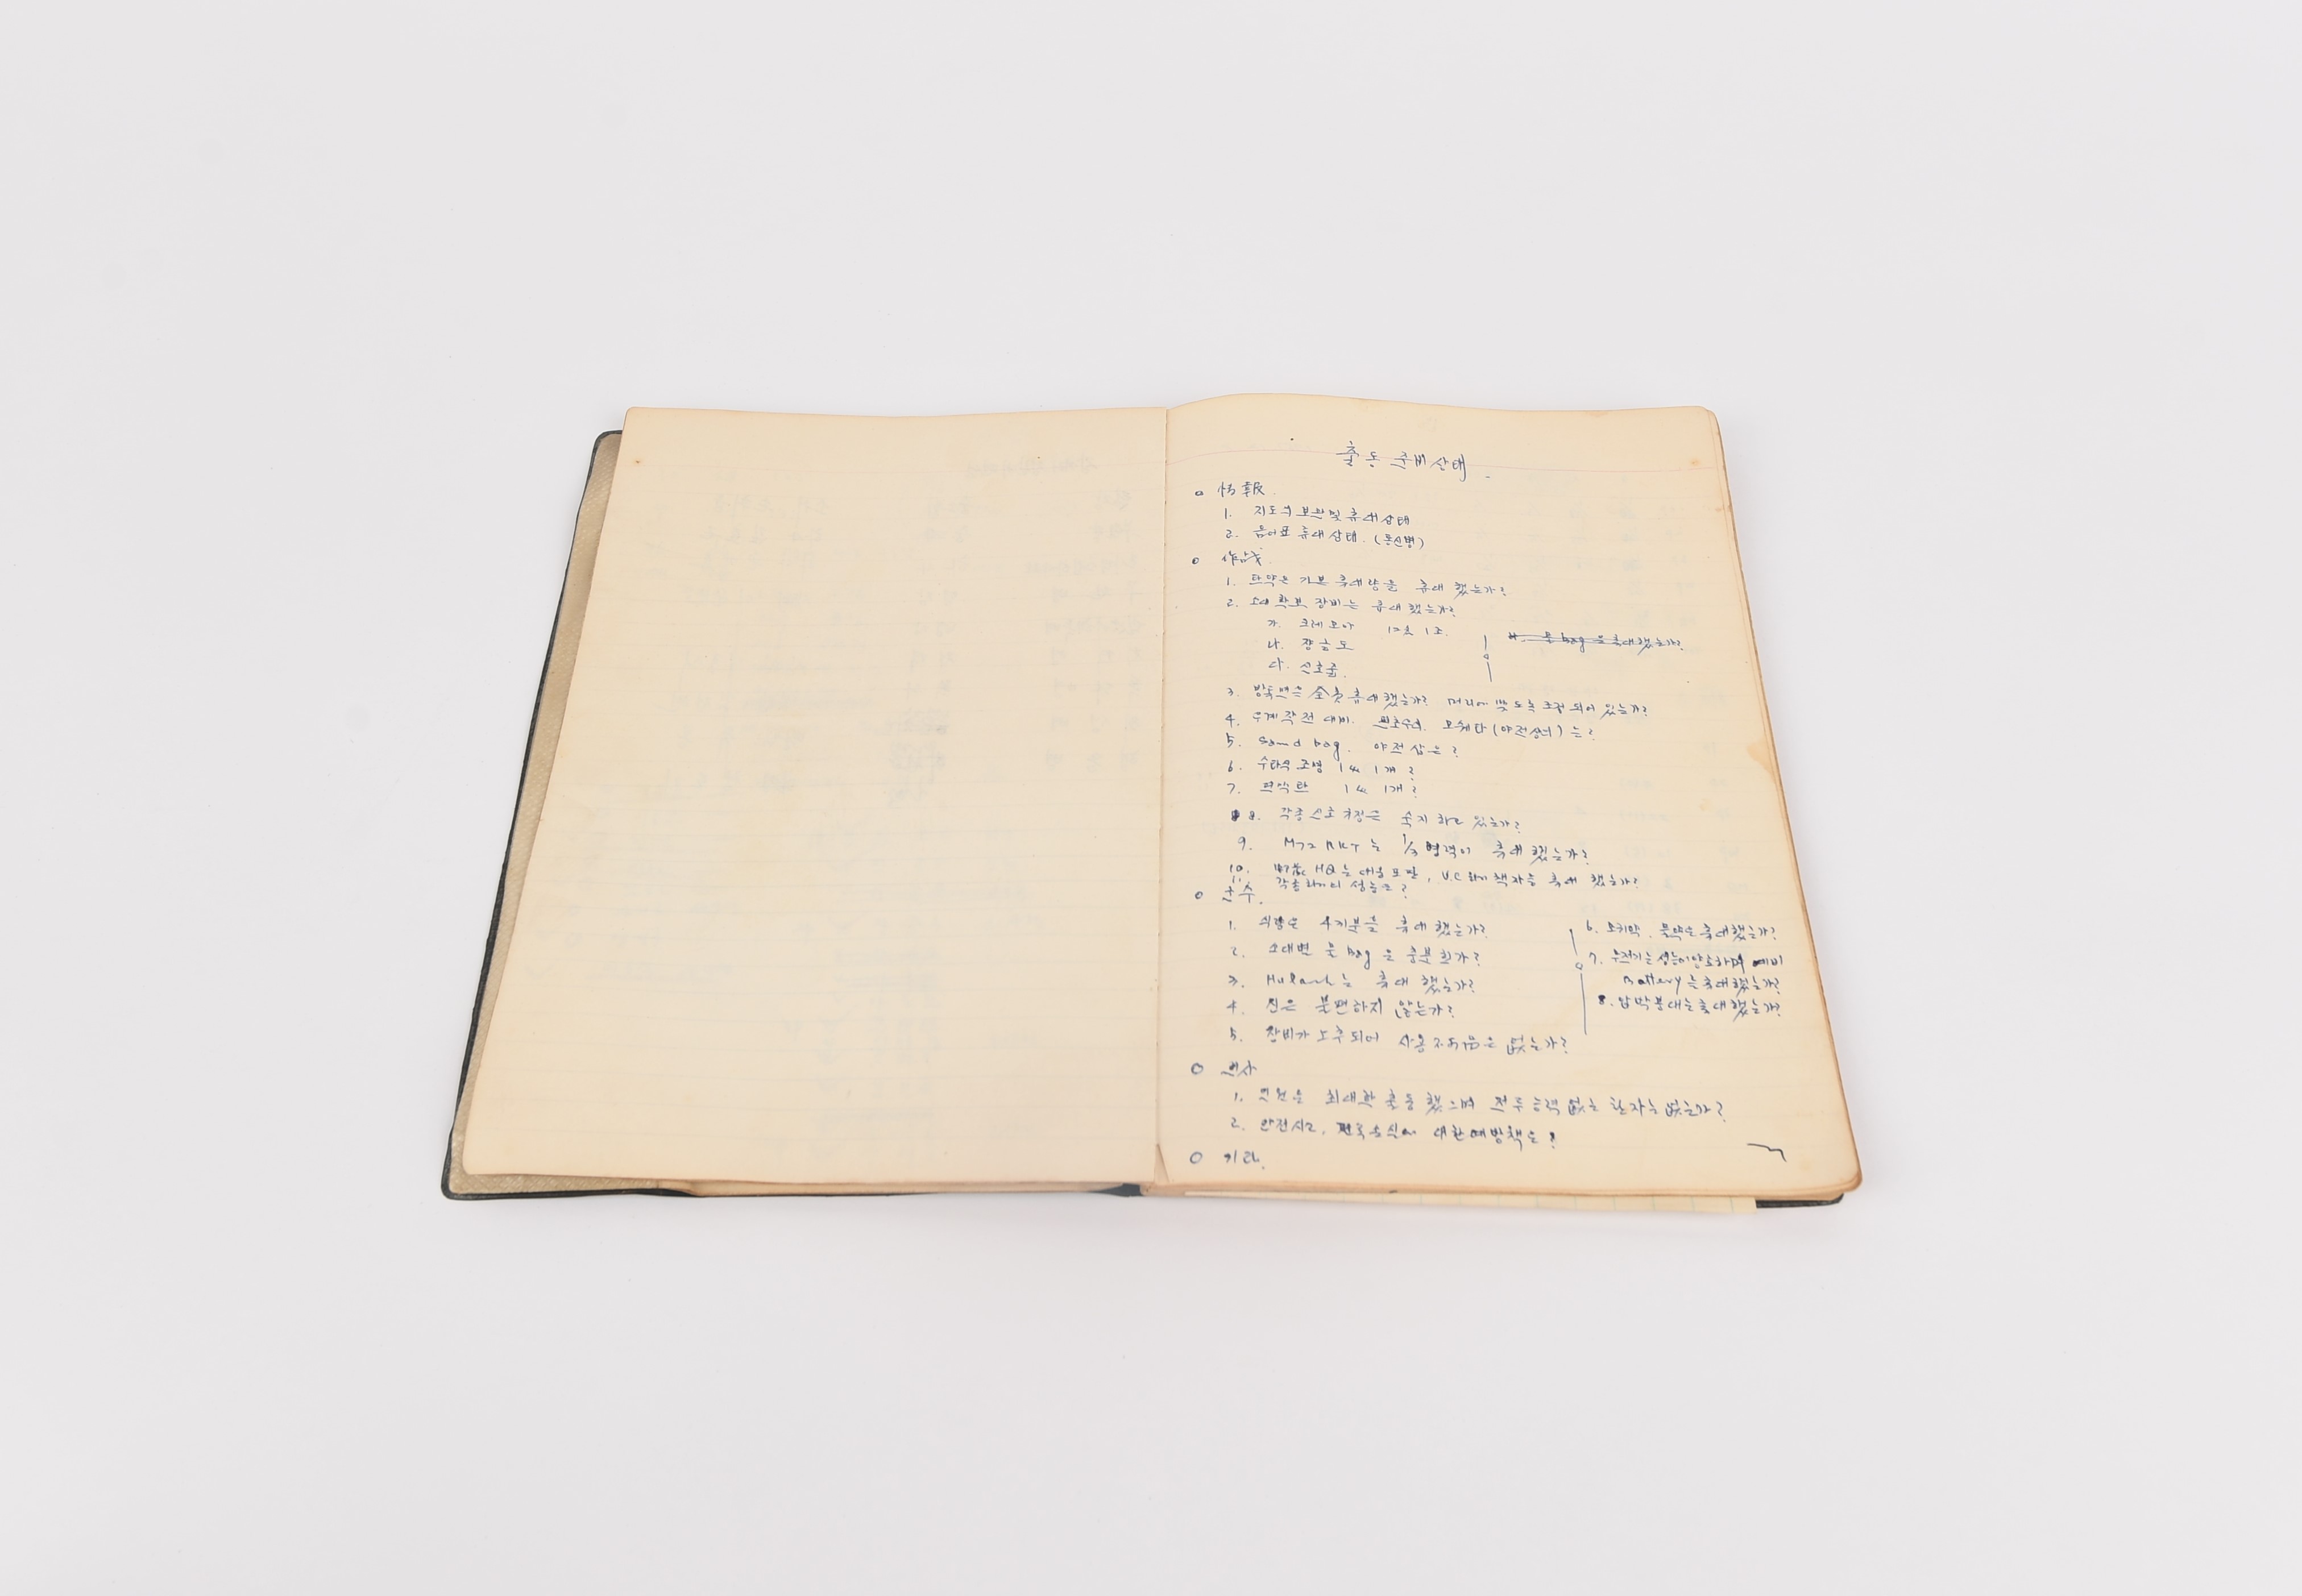 출동 준비 상태
o 情報.
1. 지도의 보관 및 휴대 상태
2. 음어표 휴대 상태. (통신병)
o 作戰.
1. 탄약은 기본 휴대량을 휴대 했는가?
2. 소대 확보 장비는 휴대 했는가?
가. 크레모아 1조
나. 정글도
다. 신호줄.
3. 방독면은 全員 휴대했는가? 머리에 맞도록 조정 되어 있는가?
4. 우계작전 대비. 판쵸우의. (야전상의)는?
5. Sand bag. 야전 삽은?
6. 수타식 조명 1개?
7. 1개?
8. 각종 신호 규정은 숙지 하고 있는가?
9. M72 는 1/3 병력이 휴대 했는가?
10. HQ는 V.C 책자를 휴대 했는가?
11. 각종 성능은?
o 군수.
1. 식량은 4기분을 휴대 했는가?
2. 소대면 물 bag은 충분 한가?
3. 휴대 했는가?
4. 신은 불편하지 않는가?
5. 장비가 노후 되어 사용 은 없는가?
6. 소화약. 물약은 휴대했는가?
7. 무전기는 성능이 양호하며 예비
Battery는 휴대했는가?
8. 압박붕대는 휴대했는가?
o 인사
1. 인원은 최대한 출동 했으며 전투능력 없는 환자는 없는가?
2. 안전사고, 대한 예방책은?
o 기타.